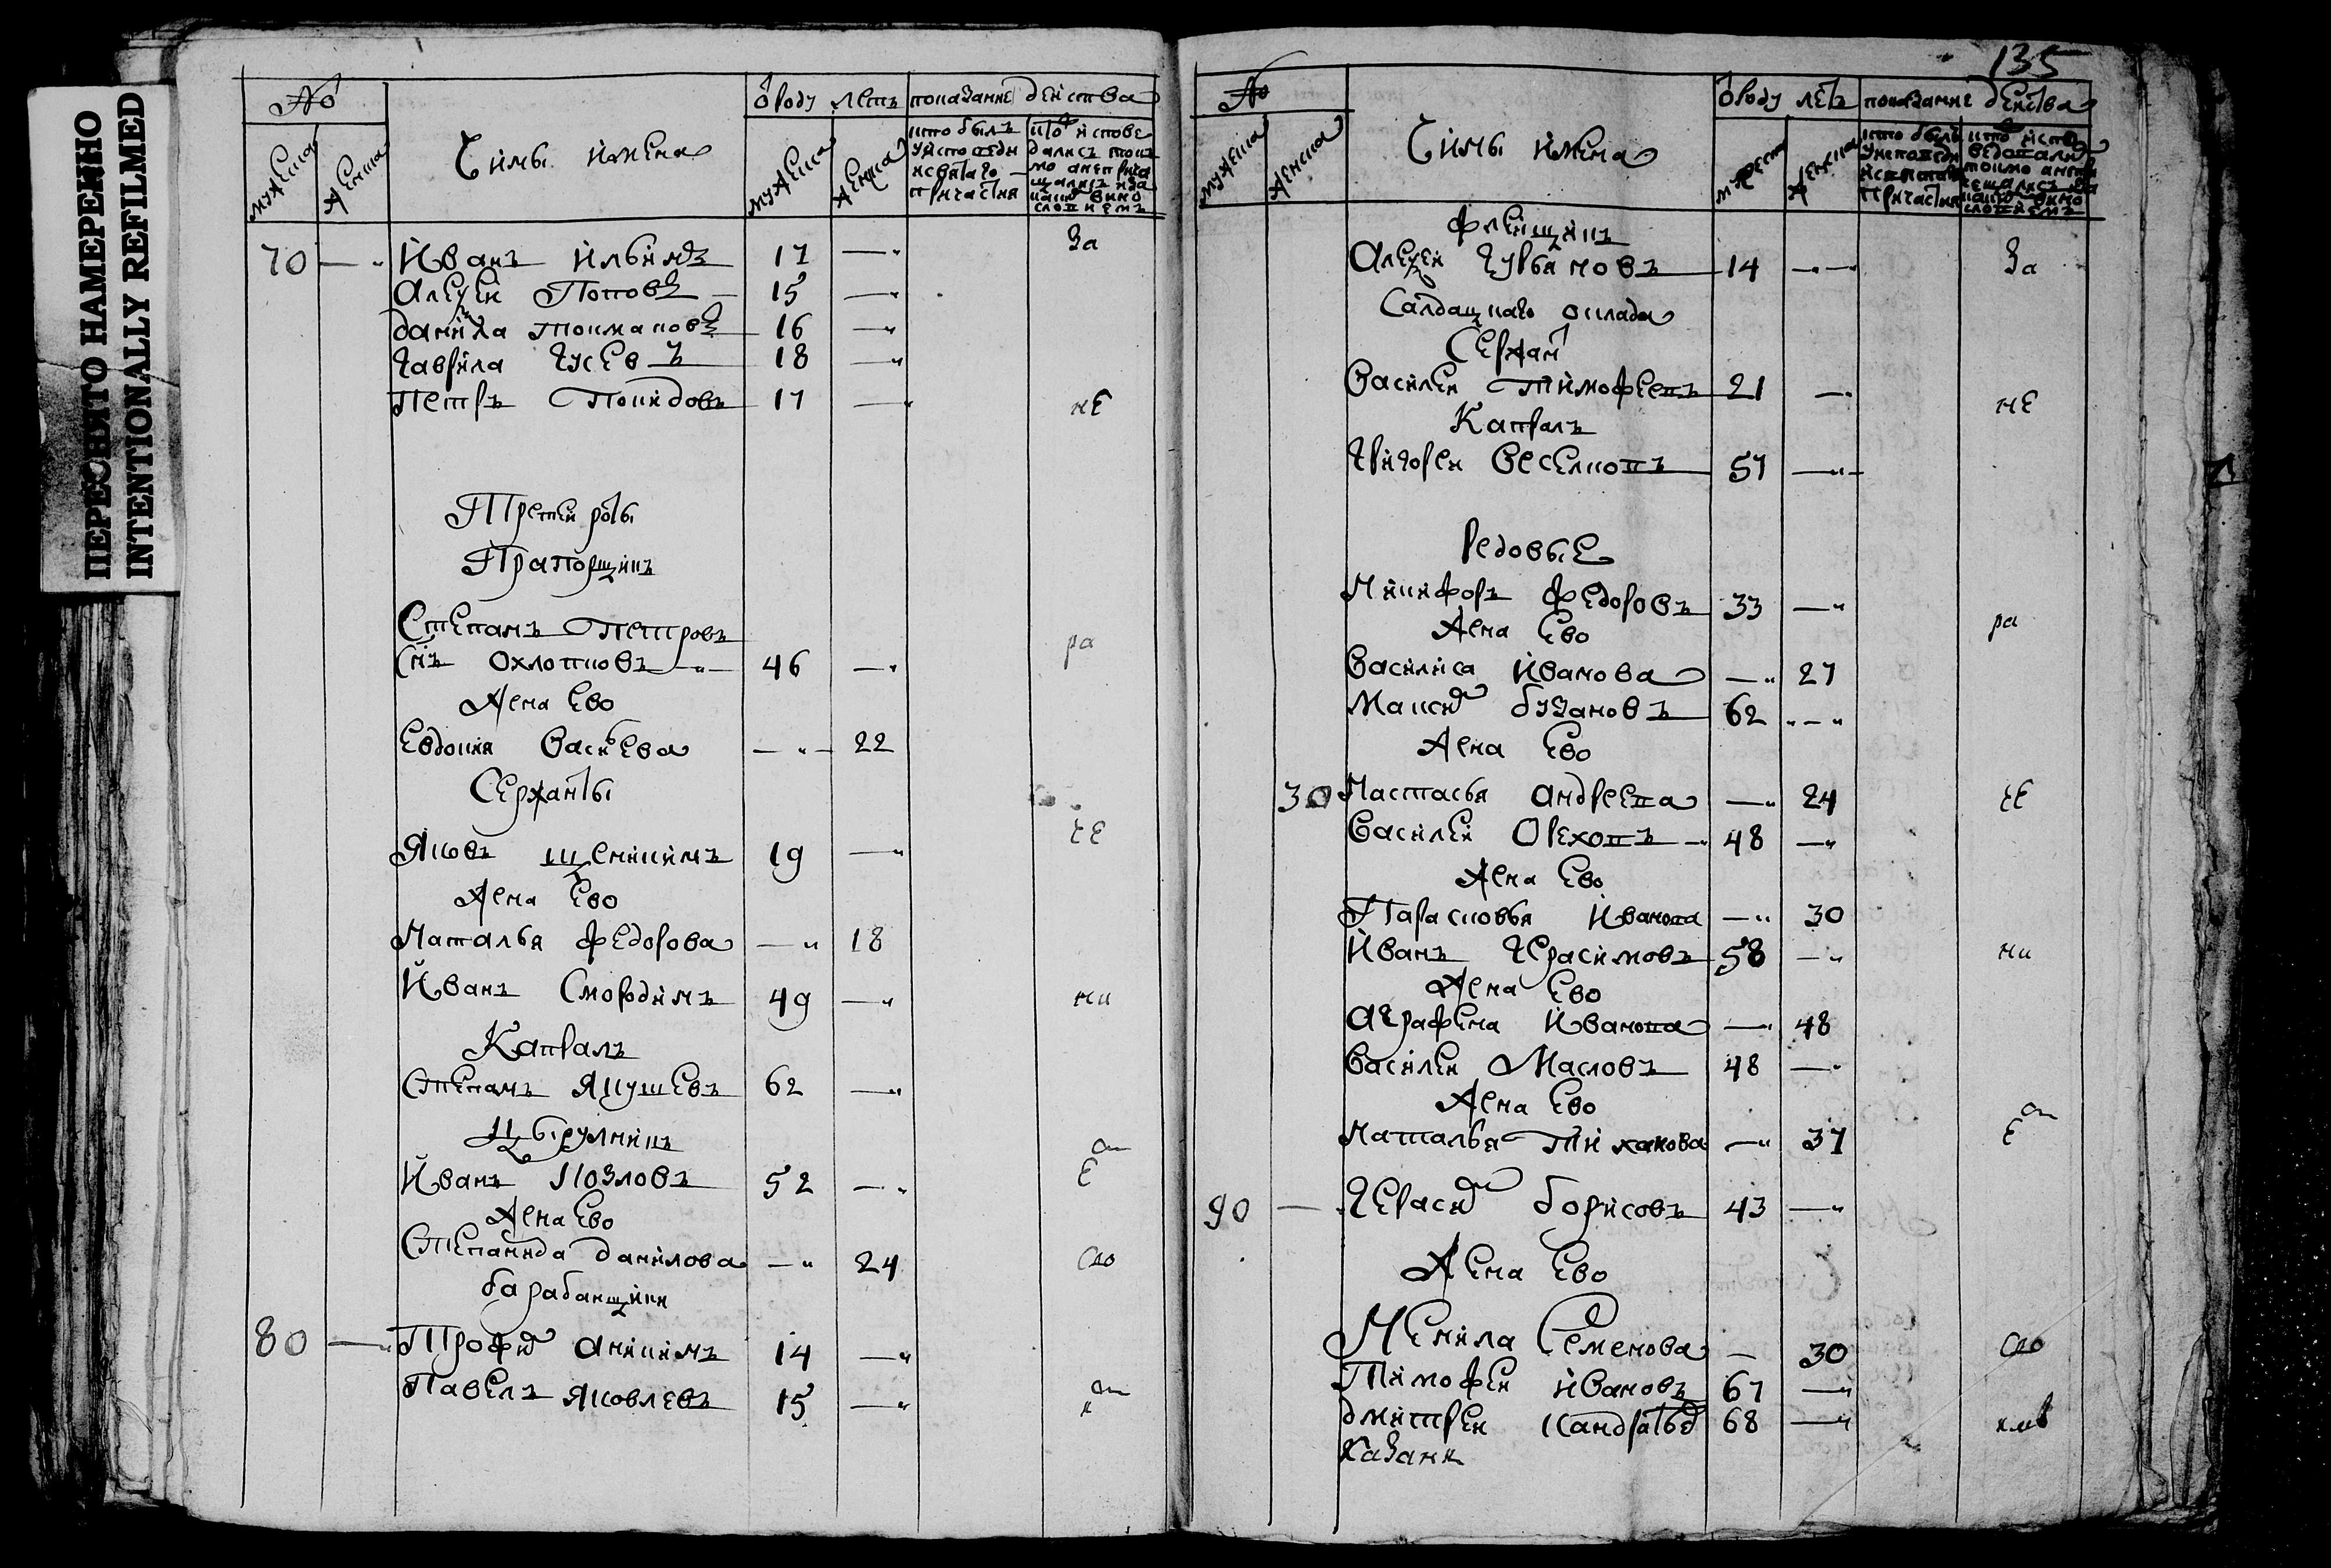 ПЕРЕСНЯТО НАМЕРЕННО
INTENTIONALLY REFILMED
№
мужеска
женска
Чины имена
ѻроду летъ
мужеска
женска
показание действа
кто былъ
у исповеди
и святаго
причастия
кто исповедались токмо а не причащались и за каким винословием
70
Иванъ Ильинъ 17 за
Алеѯей Поповъ 15
данила токмаковъ 16
гаврила гусевъ 18
Петръ Поцидовъ 17 не
Третей роты
Прапорщикъ
Степанъ Петровъ
снъ Охлопковъ 46 ра
жена ево
Евдокия Васильева 22
Сержанты
Яковъ щеникинъ 19 че
жена ево
Наталья федорова 18
Иванъ Смородинъ 49 ни
Капралъ
Степанъ Якушевъ 62
Цырулникъ
Иванъ Козловъ 52 е
жена ево
Степанида данилова 24 сво
барабанщики
80 Трофим Аникинъ 14
Павелъ Яковлевъ 15
135
№
мужеска
женска
Чины имена
ѻроду летъ
мужеска
женска
показание действа
кто былъ
у исповеди
и святаго
причастия
флейщикъ
Алеѯей Курбановъ 14 за
Салдацкаго оклада
Сержант
Василей Тимофеевъ 21 не
Капралъ
Григорей Веселковъ 57
Редовые
Никифоръ федоровъ 33 ра
жена ево
Василиса Иванова 27
Максим бузановъ 62
жена ево
30 Настасья Андреева 24 че
Василей Ореховъ 48
жена ево
Парасковья Иванова 30
Иванъ Герасимовъ 58 ни
жена ево
Аграфена Иванова 48
Василей Масловъ 48
жена ево
Наталья Тиханова 37 е
90 Герасим борисовъ 43
жена ево
Ненила Семенова 30 сво
Тимофей ивановъ 67
дмитрей Кандратьев 68
Казани